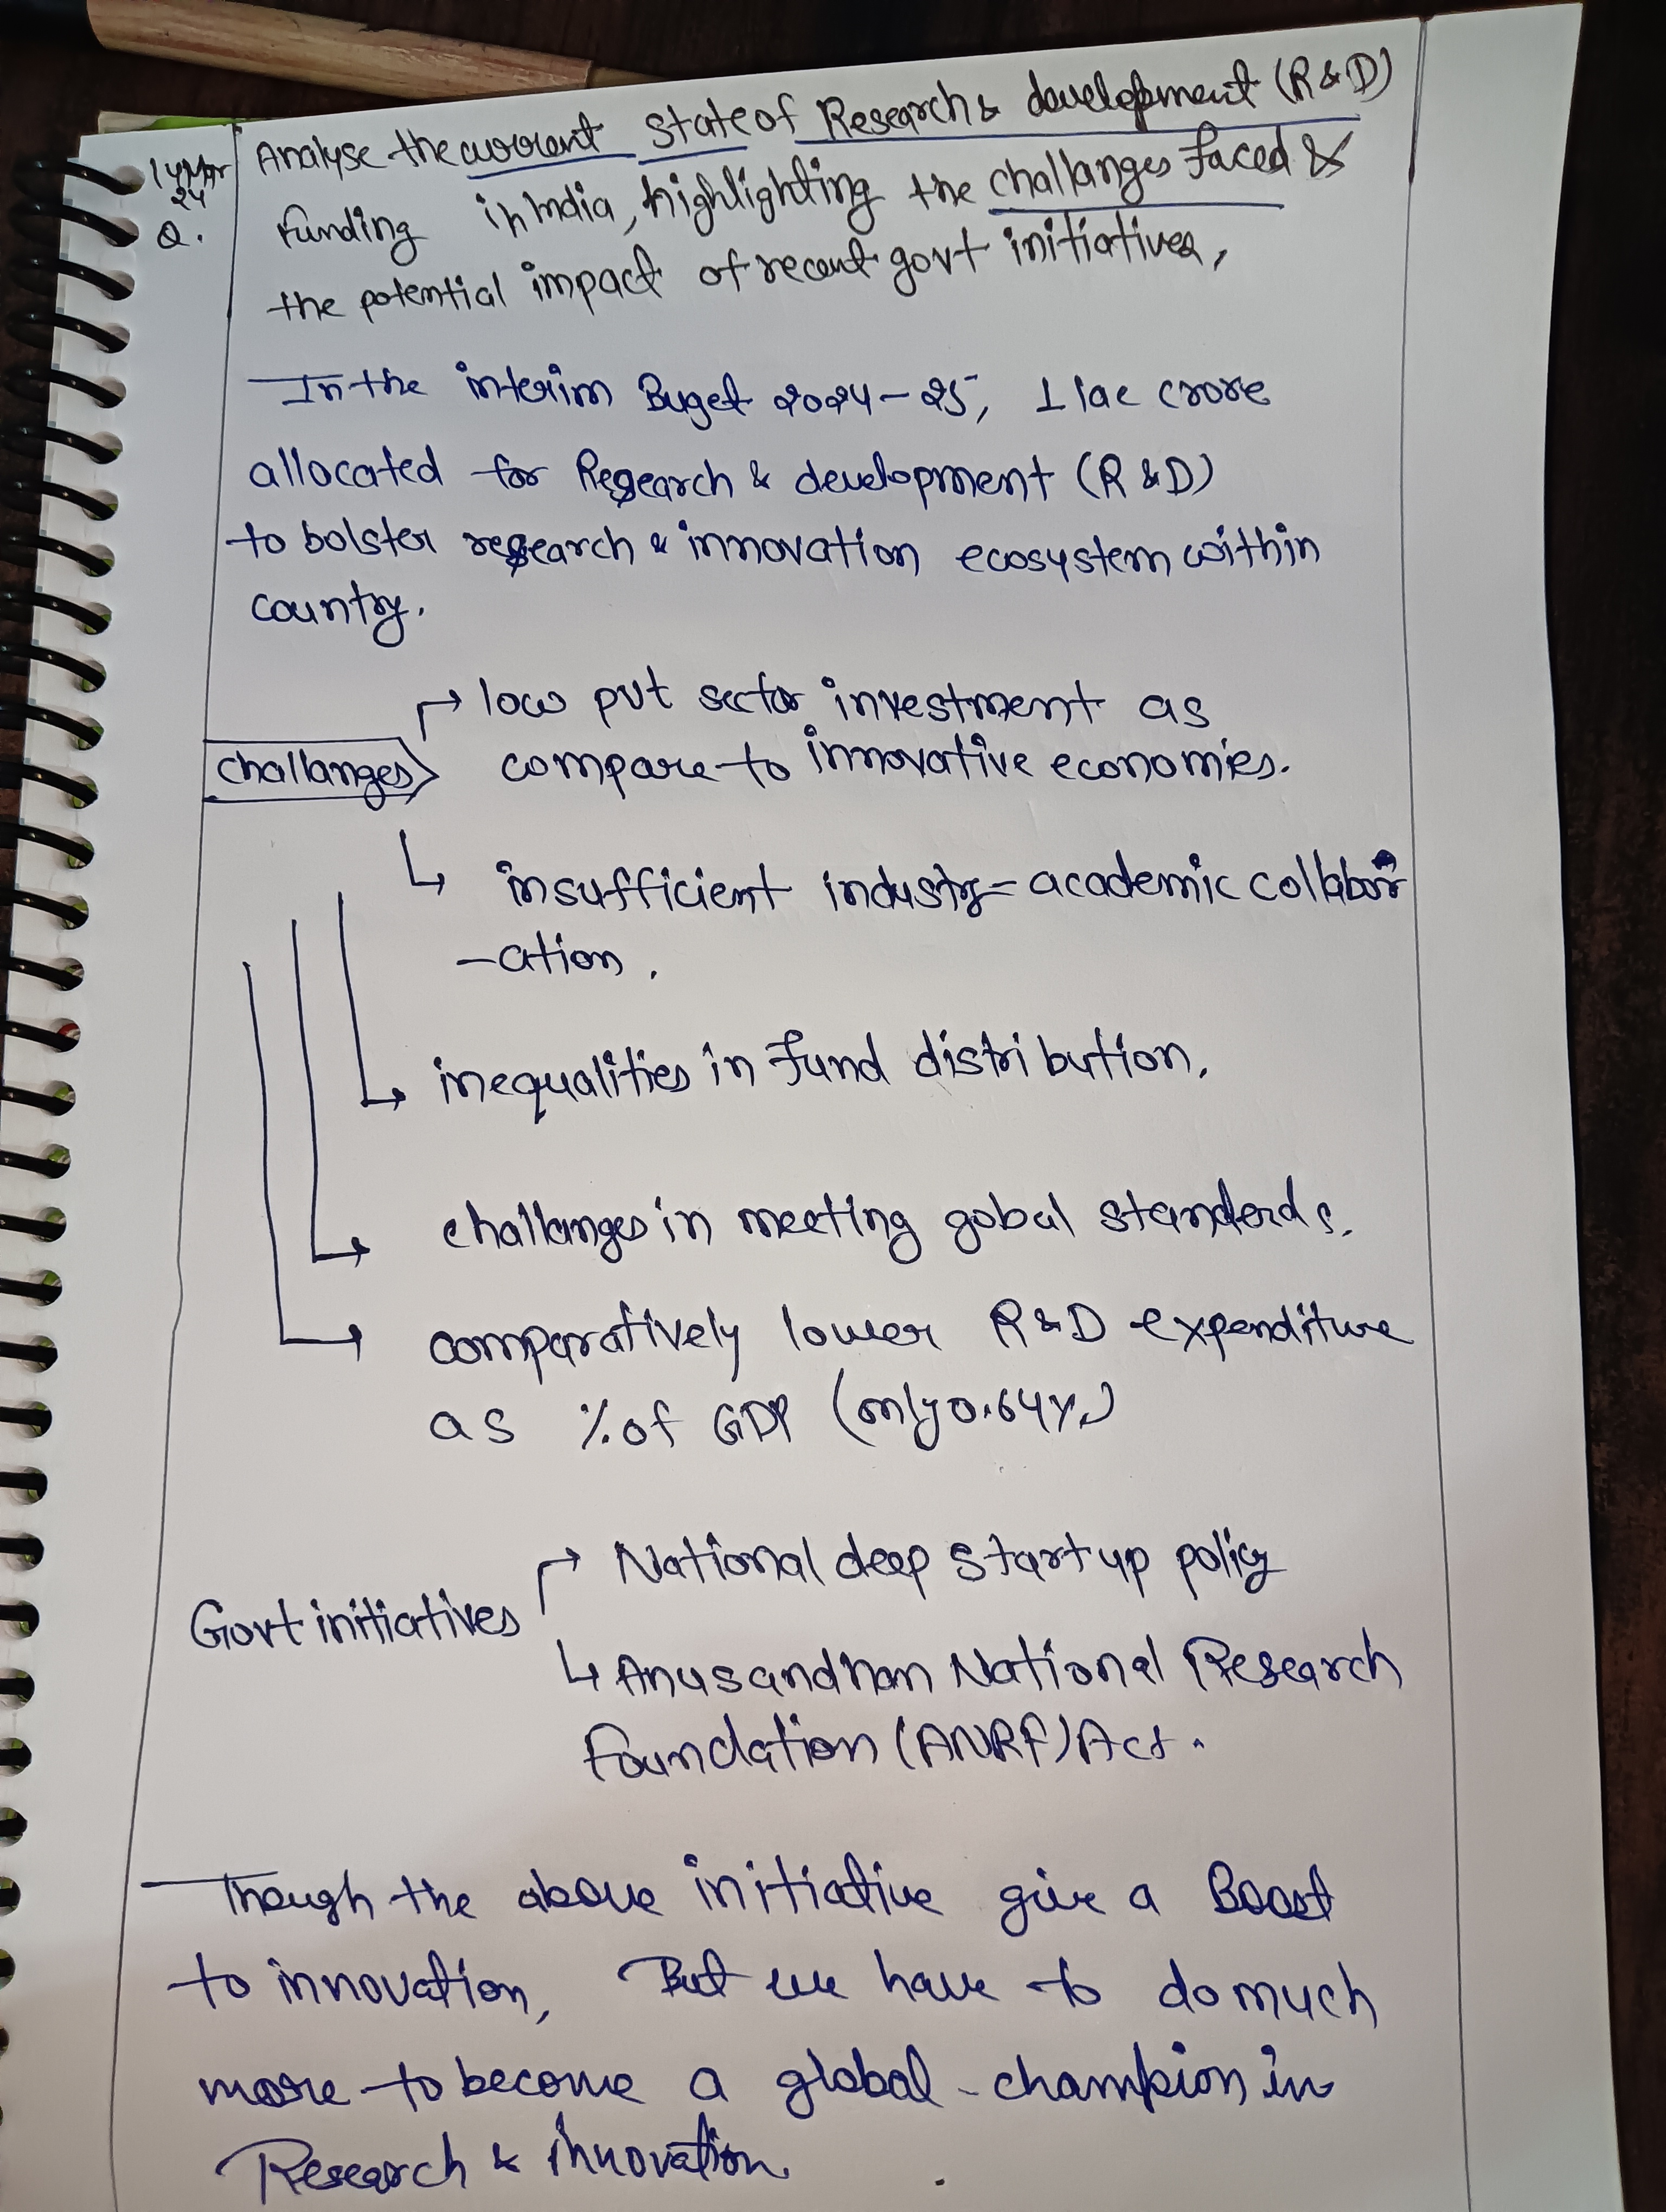 14 Mar
24
Q.
Analyse the current state of Research & development (R&D)
funding in India, highlighting the challanges faced &
the potential impact of recent govt initiatives,
In the interim Buget 2024-25, 1 lac crore
allocated for Research & development (R&D)
to bolster research & innovation ecosystem within
country.
challanges
low pvt sector investment as
compare to innovative economies.
insufficient industry=academic collabor
-ation.
inequalities in fund distribution.
challanges in meeting gobal standerds.
comparatively lower R&D expenditure
as % of GDP (only 0.64%)
Govt initiatives
National deep startup policy
Anusandhan National Research
Foundation (ANRF) Act.
Though the above initiative give a Boost
to innovation, But we have to do much
more to become a global champion in
Research & innovation.